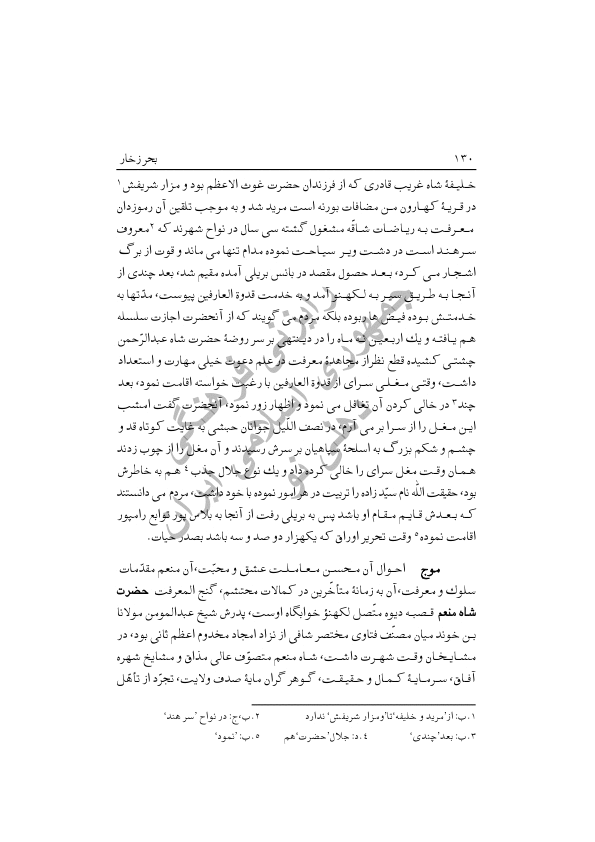 ۱۳۰ بحر زخار
خلیفهٔ شاه غریب قادری که از فرزندان حضرت غوث الاعظم بود و مزار شریفش۱
در قریهٔ کهارون من مضافات بورنه است مرید شد و به موجب تلقین آن رموزدان
معرفت به ریاضات شاقّه مشغول گشته سی سال در نواح شهرند که ۲معروف
سرهند است در دشت وبر سیاحت نموده مدام تنها می ماند و قوت از برگ
اشجار می کرد، بعد حصول مقصد در بانس بریلی آمده مقیم شد، بعد چندی از
آنجا به طریق سیر به لکهنو آمد و به خدمت قدوة العارفین پیوست، مدّتها به
خدمتش بوده فیض ها ربوده بلکه مردم می گویند که از آنحضرت اجازت سلسله
هم یافته و یك اربعین نه ماه را در دیتنهی بر سر روضهٔ حضرت شاه عبدالرّحمن
چشتی کشیده قطع نظراز مجاهدهٔ معرفت در علم دعوت خیلی مهارت و استعداد
داشت، وقتی مغلی سرای از قدوة العارفین با رغبت خواسته اقامت نمود، بعد
چند۳ در خالی کردن آن تغافل می نمود و اظهار زور نمود، آنحضرت گفت امشب
این مغل را از سرا بر می آرم، در نصف اللّیل جوانان حبشی به غایت کوتاه قد و
چشم و شکم بزرگ به اسلحهٔ سپاهیان بر سرش رسیدند و آن مغل را از چوب زدند
همان وقت مغل سرای را خالی کرده داد و یك نوع جلال جذب۴ هم به خاطرش
بود، حقیقت الله نام سیّد زاده را تربیت در هر امور نموده با خود داشت، مردم می دانستند
که بعدش قایم مقام او باشد پس به بریلی رفت از آنجا به بلاس پور توابع رامپور
اقامت نموده۵ وقت تحریر اوراق که یکهزار دو صد و سه باشد بصدر حیات.
موج احوال آن محسن معاملت عشق و محبّت،آن منعم مقدّمات
سلوك و معرفت،آن به زمانهٔ متأخّرین در کمالات محتشم، گنج المعرفت حضرت
شاه منعم قصبه دیوه متّصل لکهنؤ خوابگاه اوست، پدرش شیخ عبدالمومن مولانا
بن خوند میان مصنّف فتاوی مختصر شافی از نژاد امجاد مخدوم اعظم ثانی بود، در
مشایخان وقت شهرت داشت، شاه منعم متصوّف عالی مذاق و مشایخ شهره
آفاق، سرمایهٔ کمال و حقیقت، گوهر گران مایهٔ صدف ولایت، تجرّد از تأهّل
۱.ب: از‘مرید و خلیفه‘تا‘ومزار شریفش‘ ندارد ۲.ب،ج: در نواح ‘سر هند‘
۳.ب: بعد‘چندی‘ ۴.د: جلال‘حضرت‘هم ۵.ب: ‘نمود‘